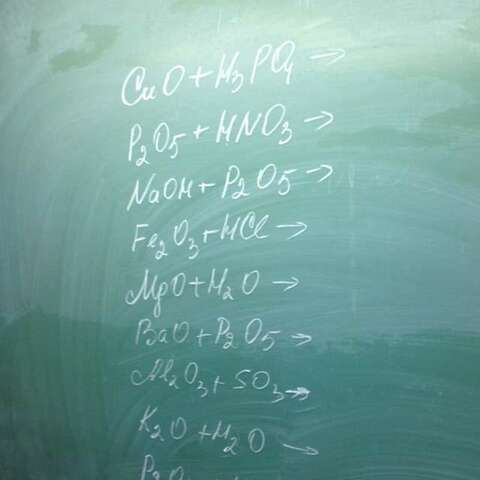 CuO + H₃PO₄ →
P₂O₅ + HNO₃ →
NaOH + P₂O₅ →
Fe₂O₃ + HCl →
MgO + H₂O →
BaO + P₂O₅ →
Al₂O₃ + SO₃ →
K₂O + H₂O →